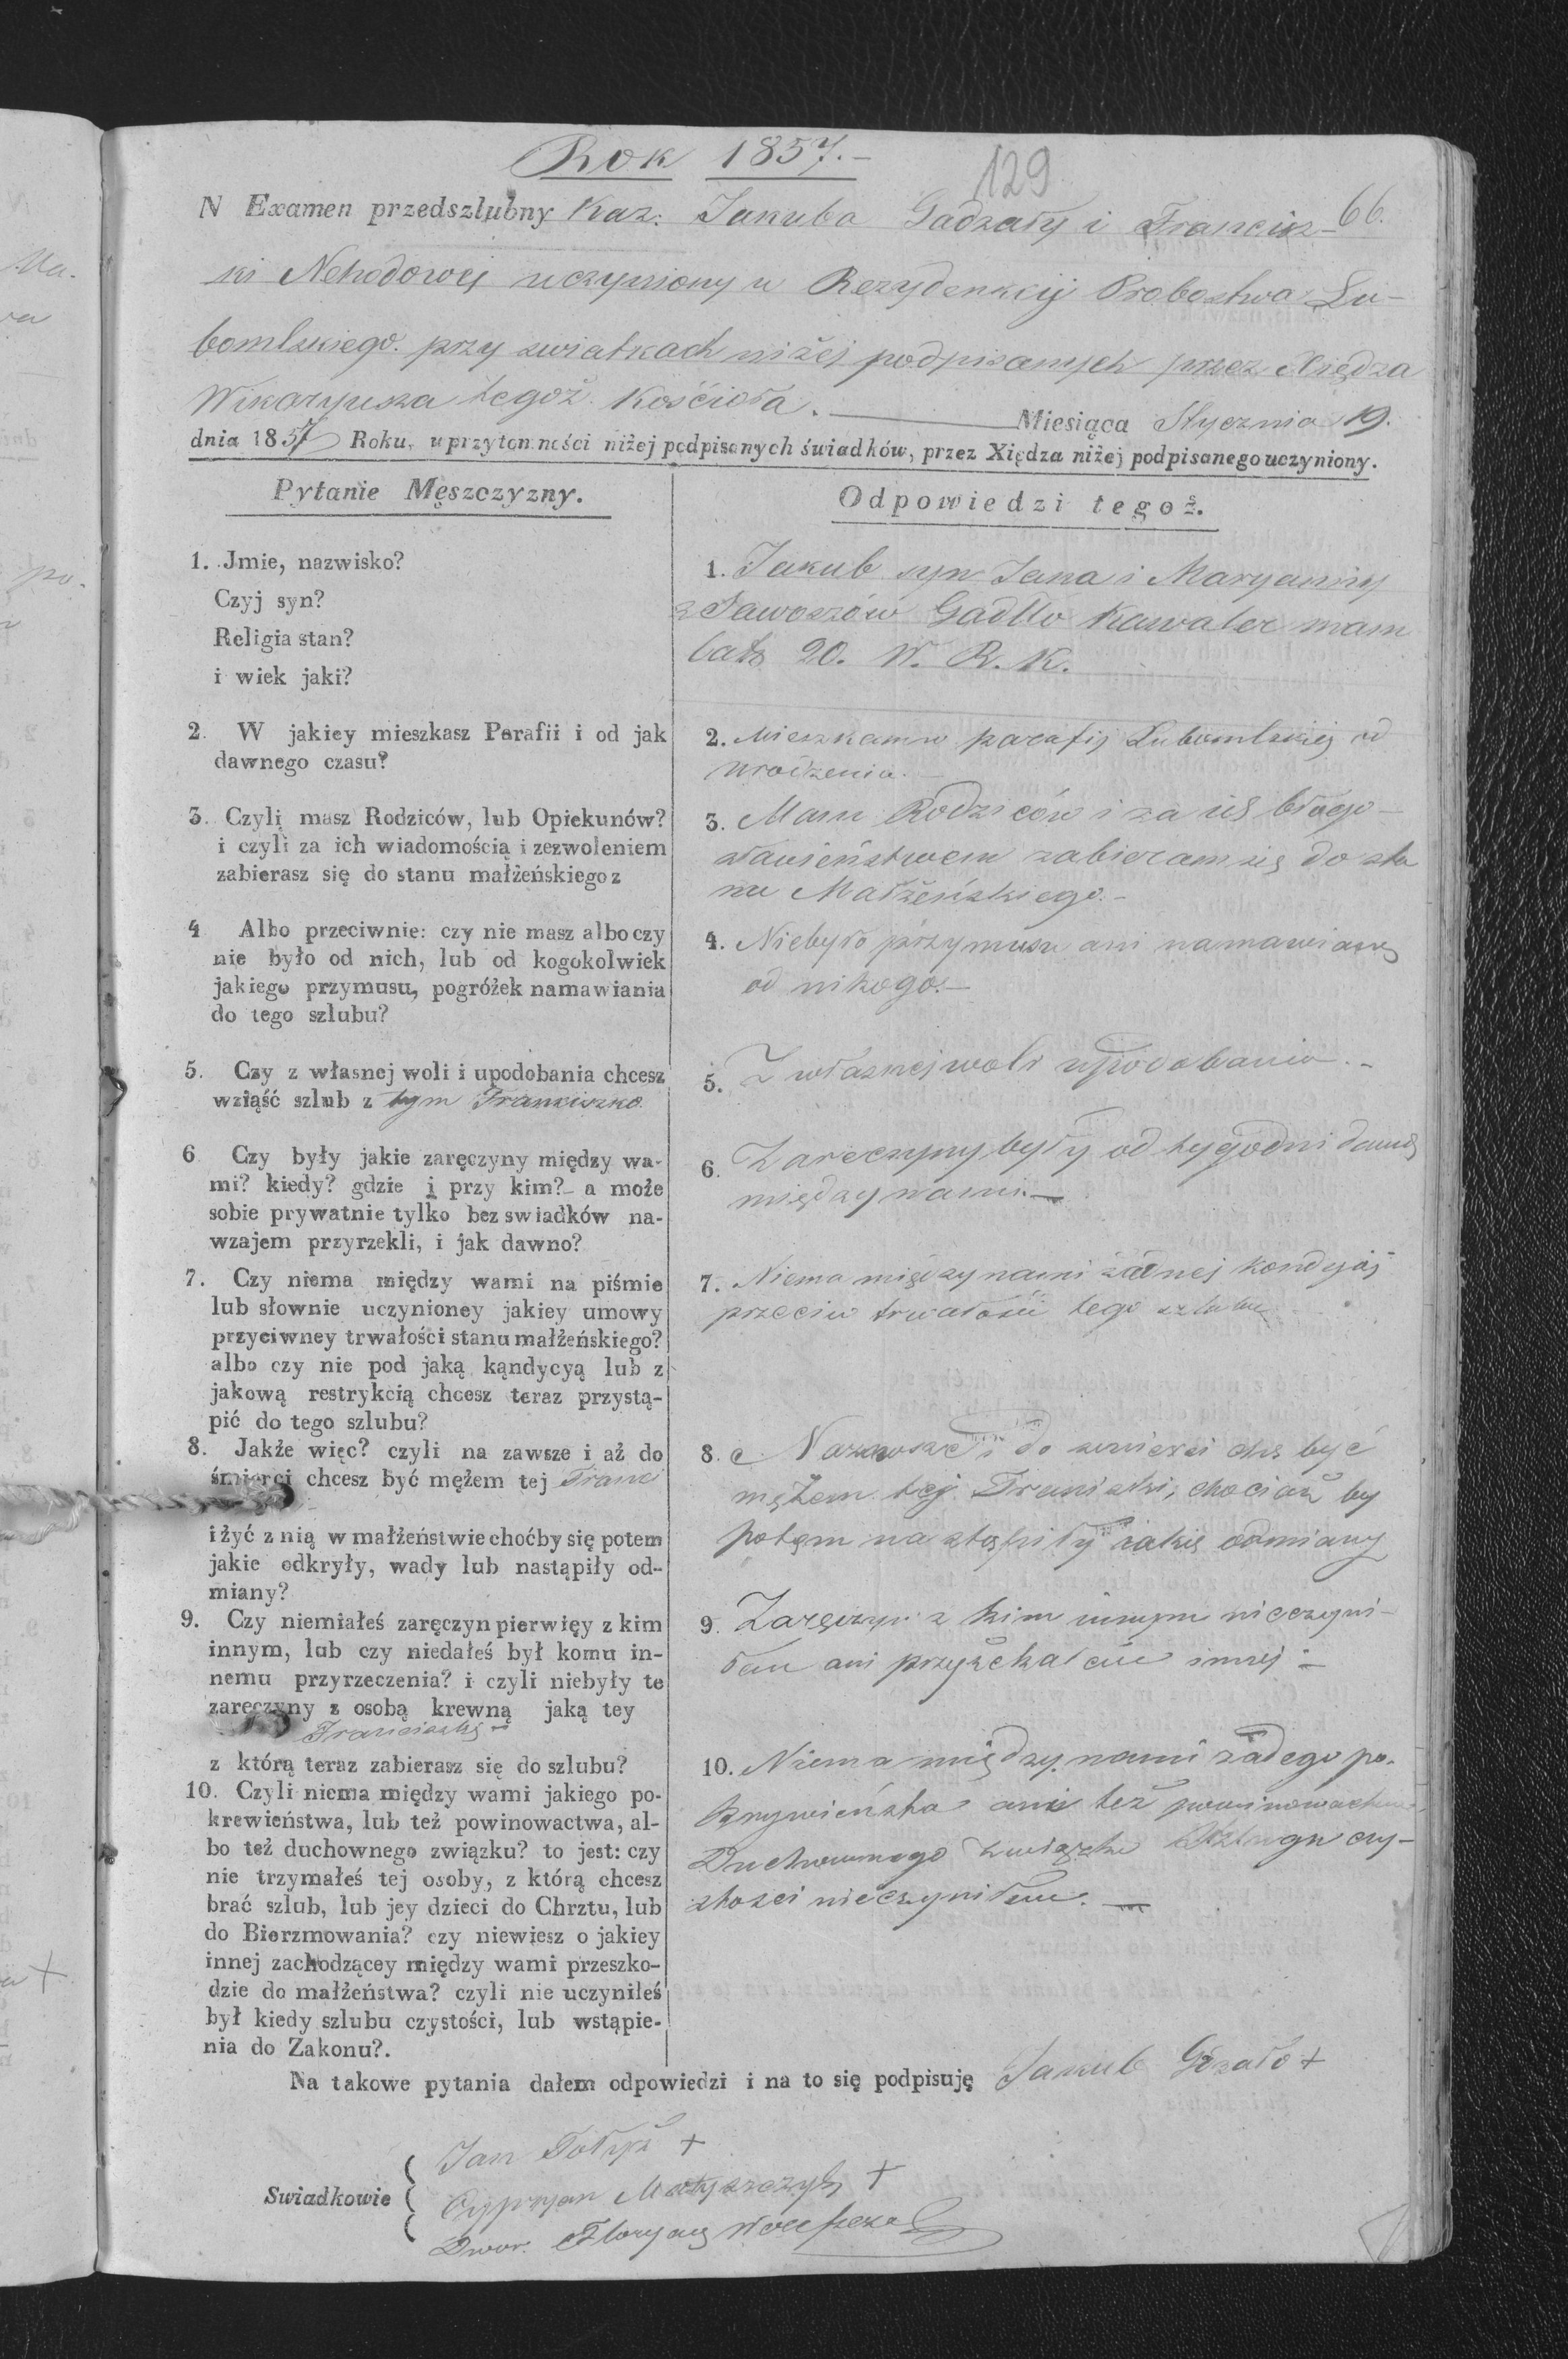 Rok 1857.–
129
N Examen przedszlubny Kaz. Jakuba Gadzały i Francisz– 66.
ki Nehodowej uczyniony w Rezydenkcij Probostwa Lu–
bomlskiego. przy swiatkach niżej podpisanych przez Xiędza
Wikaryusza tegoż. Kościoła. — Miesiąca Stycznia 19.
dnia 1857 Roku, w przytomności niżej podpisanych świadków, przez Xiędza niżej podpisanego uczyniony.
Pytanie Męszczyzny.
1. Jmie, nazwisko?
Czyj syn?
Religia stan?
i wiek jaki?
2. W jakiey mieszkasz Parafii i od jak
dawnego czasu?
3. Czyli masz Rodziców, lub Opiekunów?
i czyli za ich wiadomością i zezwoleniem
zabierasz się do stanu małżeńskiego z
4 Albo przeciwnie: czy nie masz albo czy
nie było od nich, lub od kogokolwiek
jakiego przymusu, pogróżek namawiania
do tego szlubu?
5. Czy z własnej woli i upodobania chcesz
wziąść szlub z tym Franciszko
6 Czy były jakie zaręczyny między wa-
mi? kiedy? gdzie i przy kim? a może
sobie prywatnie tylko bez swiadków na-
wzajem przyrzekli, i jak dawno?
7. Czy niema między wami na piśmie
lub słownie uczynioney jakiey umowy
przyciwney trwałości stanu małżeńskiego?
albo czy nie pod jaką kąndycyą lub z
jakową restrykcią chcesz teraz przystą-
pić do tego szlubu?
8. Jakże więc? czyli na zawsze i aż do
śmierci chcesz być mężem tej Franci
i żyć z nią w małżeństwie choćby się potem
jakie odkryły, wady lub nastąpiły od-
miany?
9. Czy niemiałeś zaręczyn pierwięy z kim
innym, lub czy niedałeś był komu in-
nemu przyrzeczenia? i czyli niebyły te
zaręczyny z osobą krewną jaką tey
Franciszki
z którą teraz zabierasz się do szlubu?
10. Czyli niema między wami jakiego po-
krewieństwa, lub też powinowactwa, al-
bo też duchownego związku? to jest: czy
nie trzymałeś tej osoby, z którą chcesz
brać szlub, lub jey dzieci do Chrztu, lub
do Bierzmowania? czy niewiesz o jakiey
innej zachodzącey między wami przeszko-
dzie do małżeństwa? czyli nie uczyniłeś
był kiedy szlubu czystości, lub wstąpie-
nia do Zakonu?.
Odpowiedzi tegoż.
1. Jakub syn Jana i Maryanny
z Jawoszów Gadllo Kawaler mam
lat 20. W. R. K.
2. Mieszkam w parafij Lubomlskiej od
urodzenia.
3. Mam Rodziców i za ich błogo–
sławieństwem zabieram się do sta
nu Małżeńskiego.–
4. Niebyło przymusu ani namawiany
od nikogo.–
5. Z własnej woli upodobania.–
6. Zareczyny były od tygodni
między nami.–
7. Niema między nami żadnej kondycij
przeciw trwałości tego szlubu
8. Nazawsze i do smierci chcę być
mężem tej Franciszki, chociaż by
potęm nastąpiły jakie odmiany
9. Zaręczyn z kim innym nieczyni–
łem ani przyżekałem innej –
10. Niema między nami żadego po.
krywieństa ani też powinowactwa
Duchownego związku Szlugu czy–
stosci nieczyniłem. —
Na takowe pytania dałem odpowiedzi i na to się podpisuję Jakub Gdzało +
Swiadkowie
Jan +
Cypryan Matyszczyk +
Dwor. Floryan